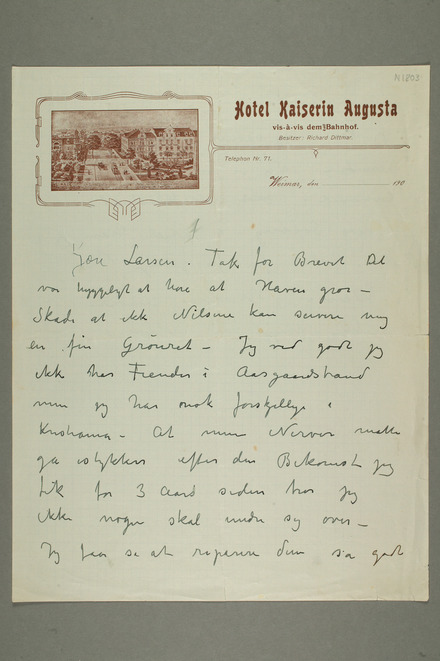 N 1803
Hotel Kaiserin Augusta
vis-à-vis dem Bahnhof.
Besitzer: Richard Dittmar.
Telephon Nr. 71.
Weimar, den 190
1
Kjære Larsen. Tak for Brevet Det
var hyggeligt at høre at Haven gror –
Skade at ikke Nilsine kan servere mig
en fin Grönret – Jeg ved godt jeg
ikke har Fiender i Aasgaardstrand
men jeg har nok forskjellige i
Kristiania – At mine Nerver måtte
gå istykker efter den Bekomst jeg
fik for 3 Aar siden tror jeg
ikke nogen skal undre sig over –
Jeg faar se at reparere dem så godt